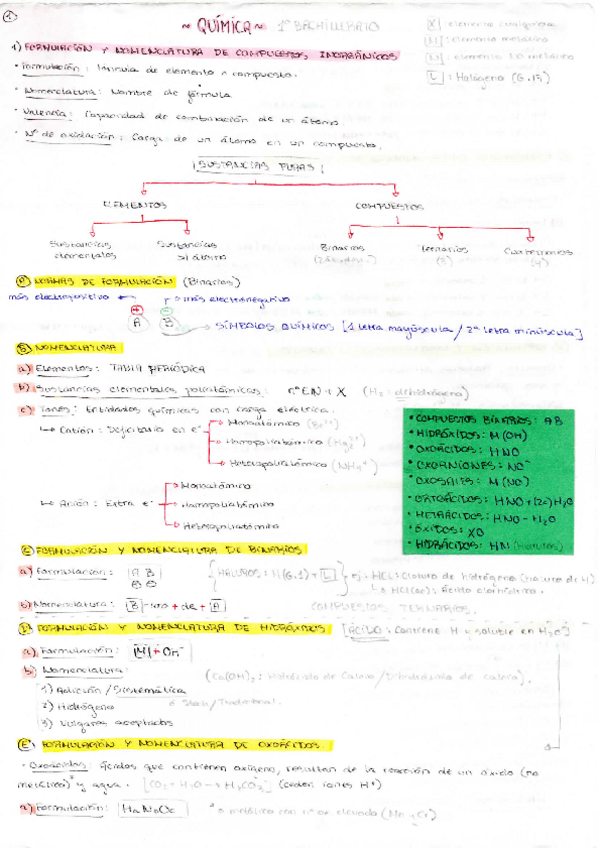 ①
~ QUÍMICA ~ 1º BACHILLERATO
X : elemento cualquiera
M : elemento metálico
N : elemento no metálico
L : Halógeno (G.17)
1) FORMULACIÓN Y NOMENCLATURA DE COMPUESTOS INORGÁNICOS
· Formulación : fórmula de elemento o compuesto.
· Nomenclatura : Nombre de fórmula
· Valencia : Capacidad de combinación de un átomo.
· Nº de oxidación : Carga de un átomo en un compuesto.
SUSTANCIAS PURAS
ELEMENTOS
COMPUESTOS
Sustancias elementales
Sustancias
Binarios
Ternarios (3)
Cuaternarios (4)
A) NORMAS DE FORMULACIÓN (Binarios)
más electropositivo ← → más electronegativo
A B → SÍMBOLOS QUÍMICOS [1ª letra mayúscula / 2ª letra minúscula]
B) NOMENCLATURA
a) Elementos : TABLA PERIÓDICA
b) Sustancias elementales poliatómicas : + X (H₂ : dihidrógeno)
c) Iones : Entidades químicas con carga eléctrica.
↳ Catión : Deficitario en e⁻
→ Monoatómico
→ Homopoliatómico (Hg₂²⁺)
→ Heteropoliatómico (NH₄⁺)
↳ Anión : Extra e⁻
→ Monoatómico
→ Homopoliatómico
→ Heteropoliatómico
· COMPUESTOS BINARIOS : AB
· HIDRÓXIDOS : M(OH)
· OXOÁCIDOS : HNO
· OXOANIONES : NO⁻
· OXOSALES : M(NO)
· ORTOÁCIDOS : HNO + H₂O
· METAÁCIDOS : HNO - H₂O
· ÓXIDOS : XO
· HIDRÁCIDOS : HN
C) FORMULACIÓN Y NOMENCLATURA DE BINARIOS
a) Formulación : A B
{HALUROS : H(G.1) + L} ej : HCl : Cloruro de hidrógeno (haluro de H)
↳ HCl(ac) : Ácido clorhídrico.
b) Nomenclatura : B -uro + de + A
COMPUESTOS TERNARIOS
D) FORMULACIÓN Y NOMENCLATURA DE HIDRÓXIDOS [ÁCIDO : Contiene H y soluble en H₂O]
a) Formulación : M + OH⁻
b) Nomenclatura : (Ca(OH)₂ : Hidróxido de Calcio / Dihidróxido de calcio).
1) Adición / Sistemática
2) Hidrógeno
3) Vulgares aceptados
Stock / Tradicional.
E) FORMULACIÓN Y NOMENCLATURA DE OXOÁCIDOS
· Oxoácidos : Ácidos que contienen oxígeno, resultan de la reacción de un óxido (no
metálico)* y agua. [CO₂ + H₂O → H₂CO₃] (ceden iones H⁺)
a) Formulación : HaNbOc
* o metálico con nº ox elevado (Mn y Cr)